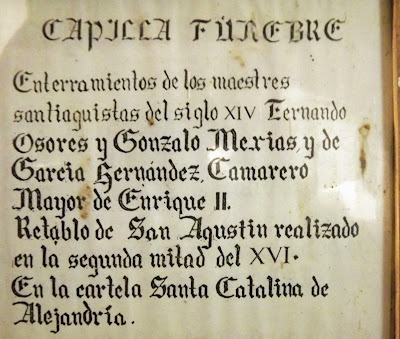 CAPILLA FÚNEBRE
Enterramientos de los maestres
santiaguistas del siglo XIV Fernando
Osores y Gonzalo Mexias, y de
Garcia Hernández, Camarero
Mayor de Enrique II.
Retablo de San Agustin realizado
en la segunda mitad del XVI.
En la cartela Santa Catalina de
Alejandría.